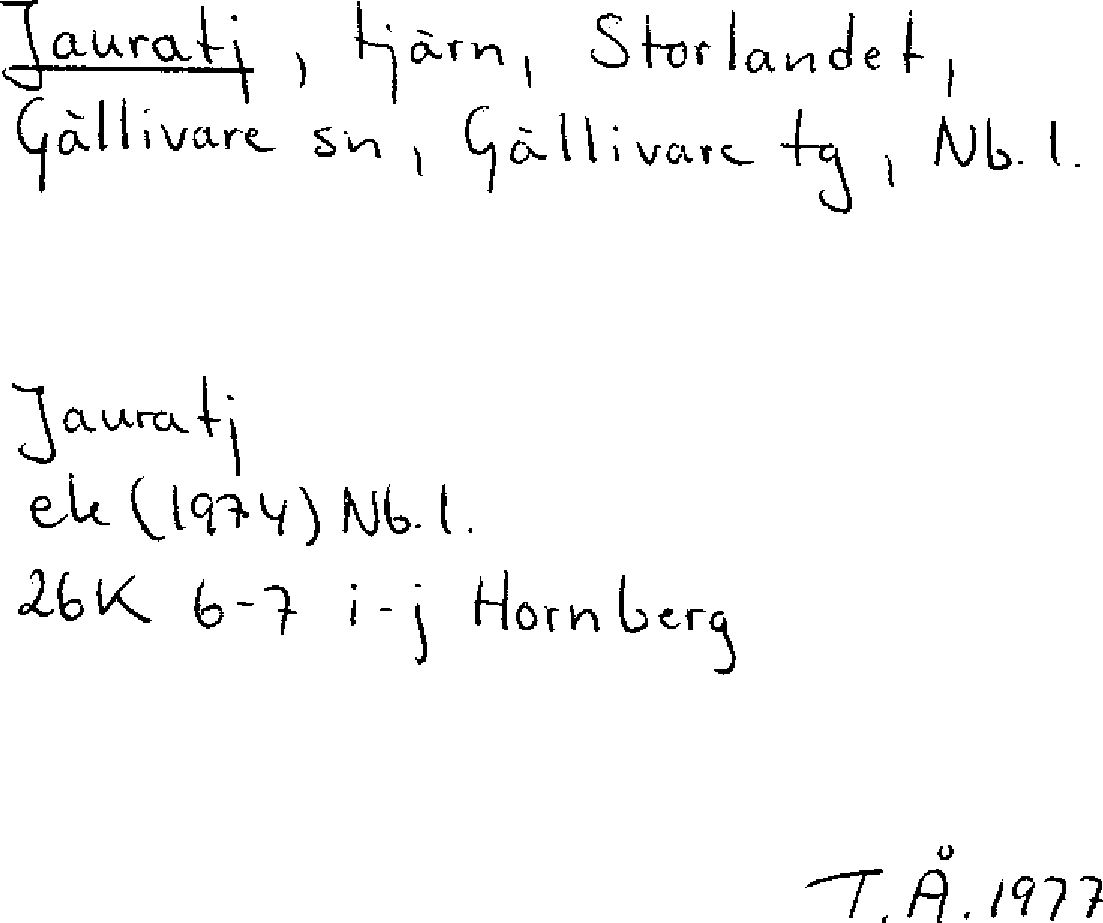 Jauratj, tjärn, Storlandet,
Gällivare sn, Gällivare tg, Nb. l.
Jauratj
ek (1974) Nb. l.
26K 6-7 i-j Hornberg
T. Å. 1977